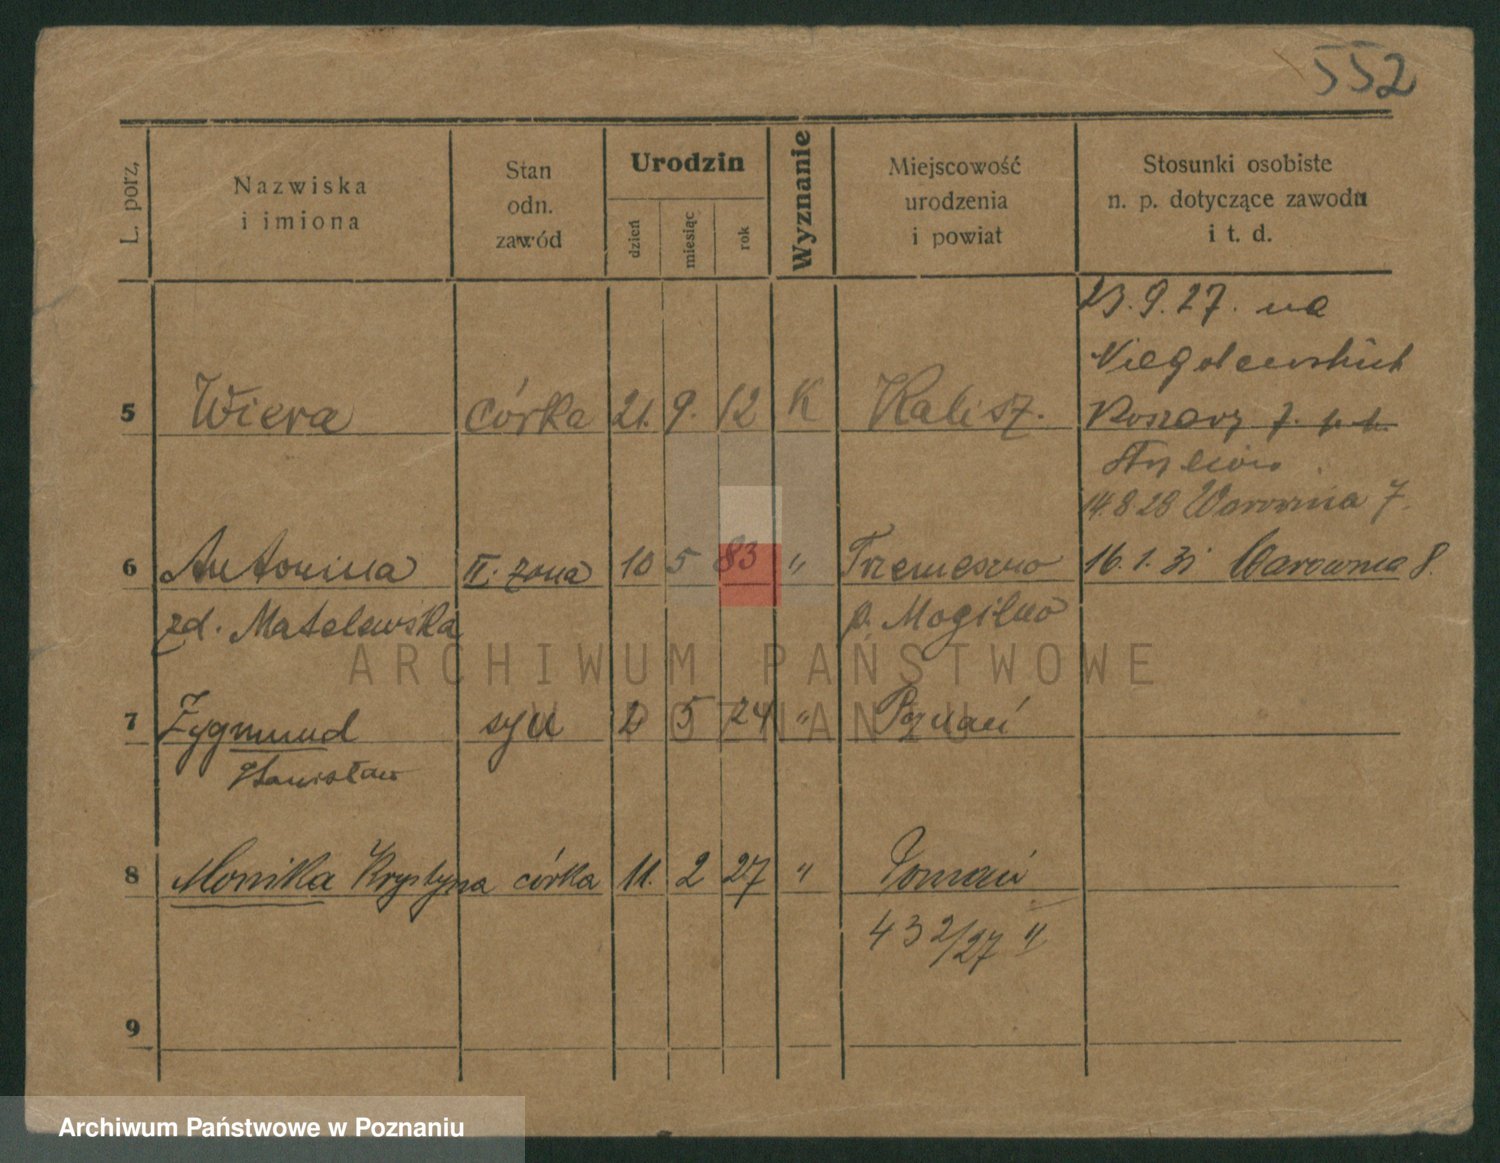 552
L. porz.
Nazwiska
i imiona
Stan
odn.
zawód
Urodzin
dzień
miesiąc
rok
Wyznanie
Miejscowość
urodzenia
i powiat
Stosunki osobiste
n. p. dotyczące zawodu
i t. d.
23.9.27. na
Niegolewskich
5 Wiera córka 21. 9. 12 K Kalisz.
Koszary 7.
14.8.28 Warownia 7.
6 Antonina II. żona 10 5 83 " Trzemeszno 16.1.31 Warownia 8.
zd. Matelewska p. Mogilno
ARCHIWUM PAŃSTWOWE
W POZNANIU
7 Zygmund syn 2 5 24 " Poznań
Stanisław
8 Monika Krystyna córka 11. 2 27 " Poznań
432/27 II
9
Archiwum Państwowe w Poznaniu